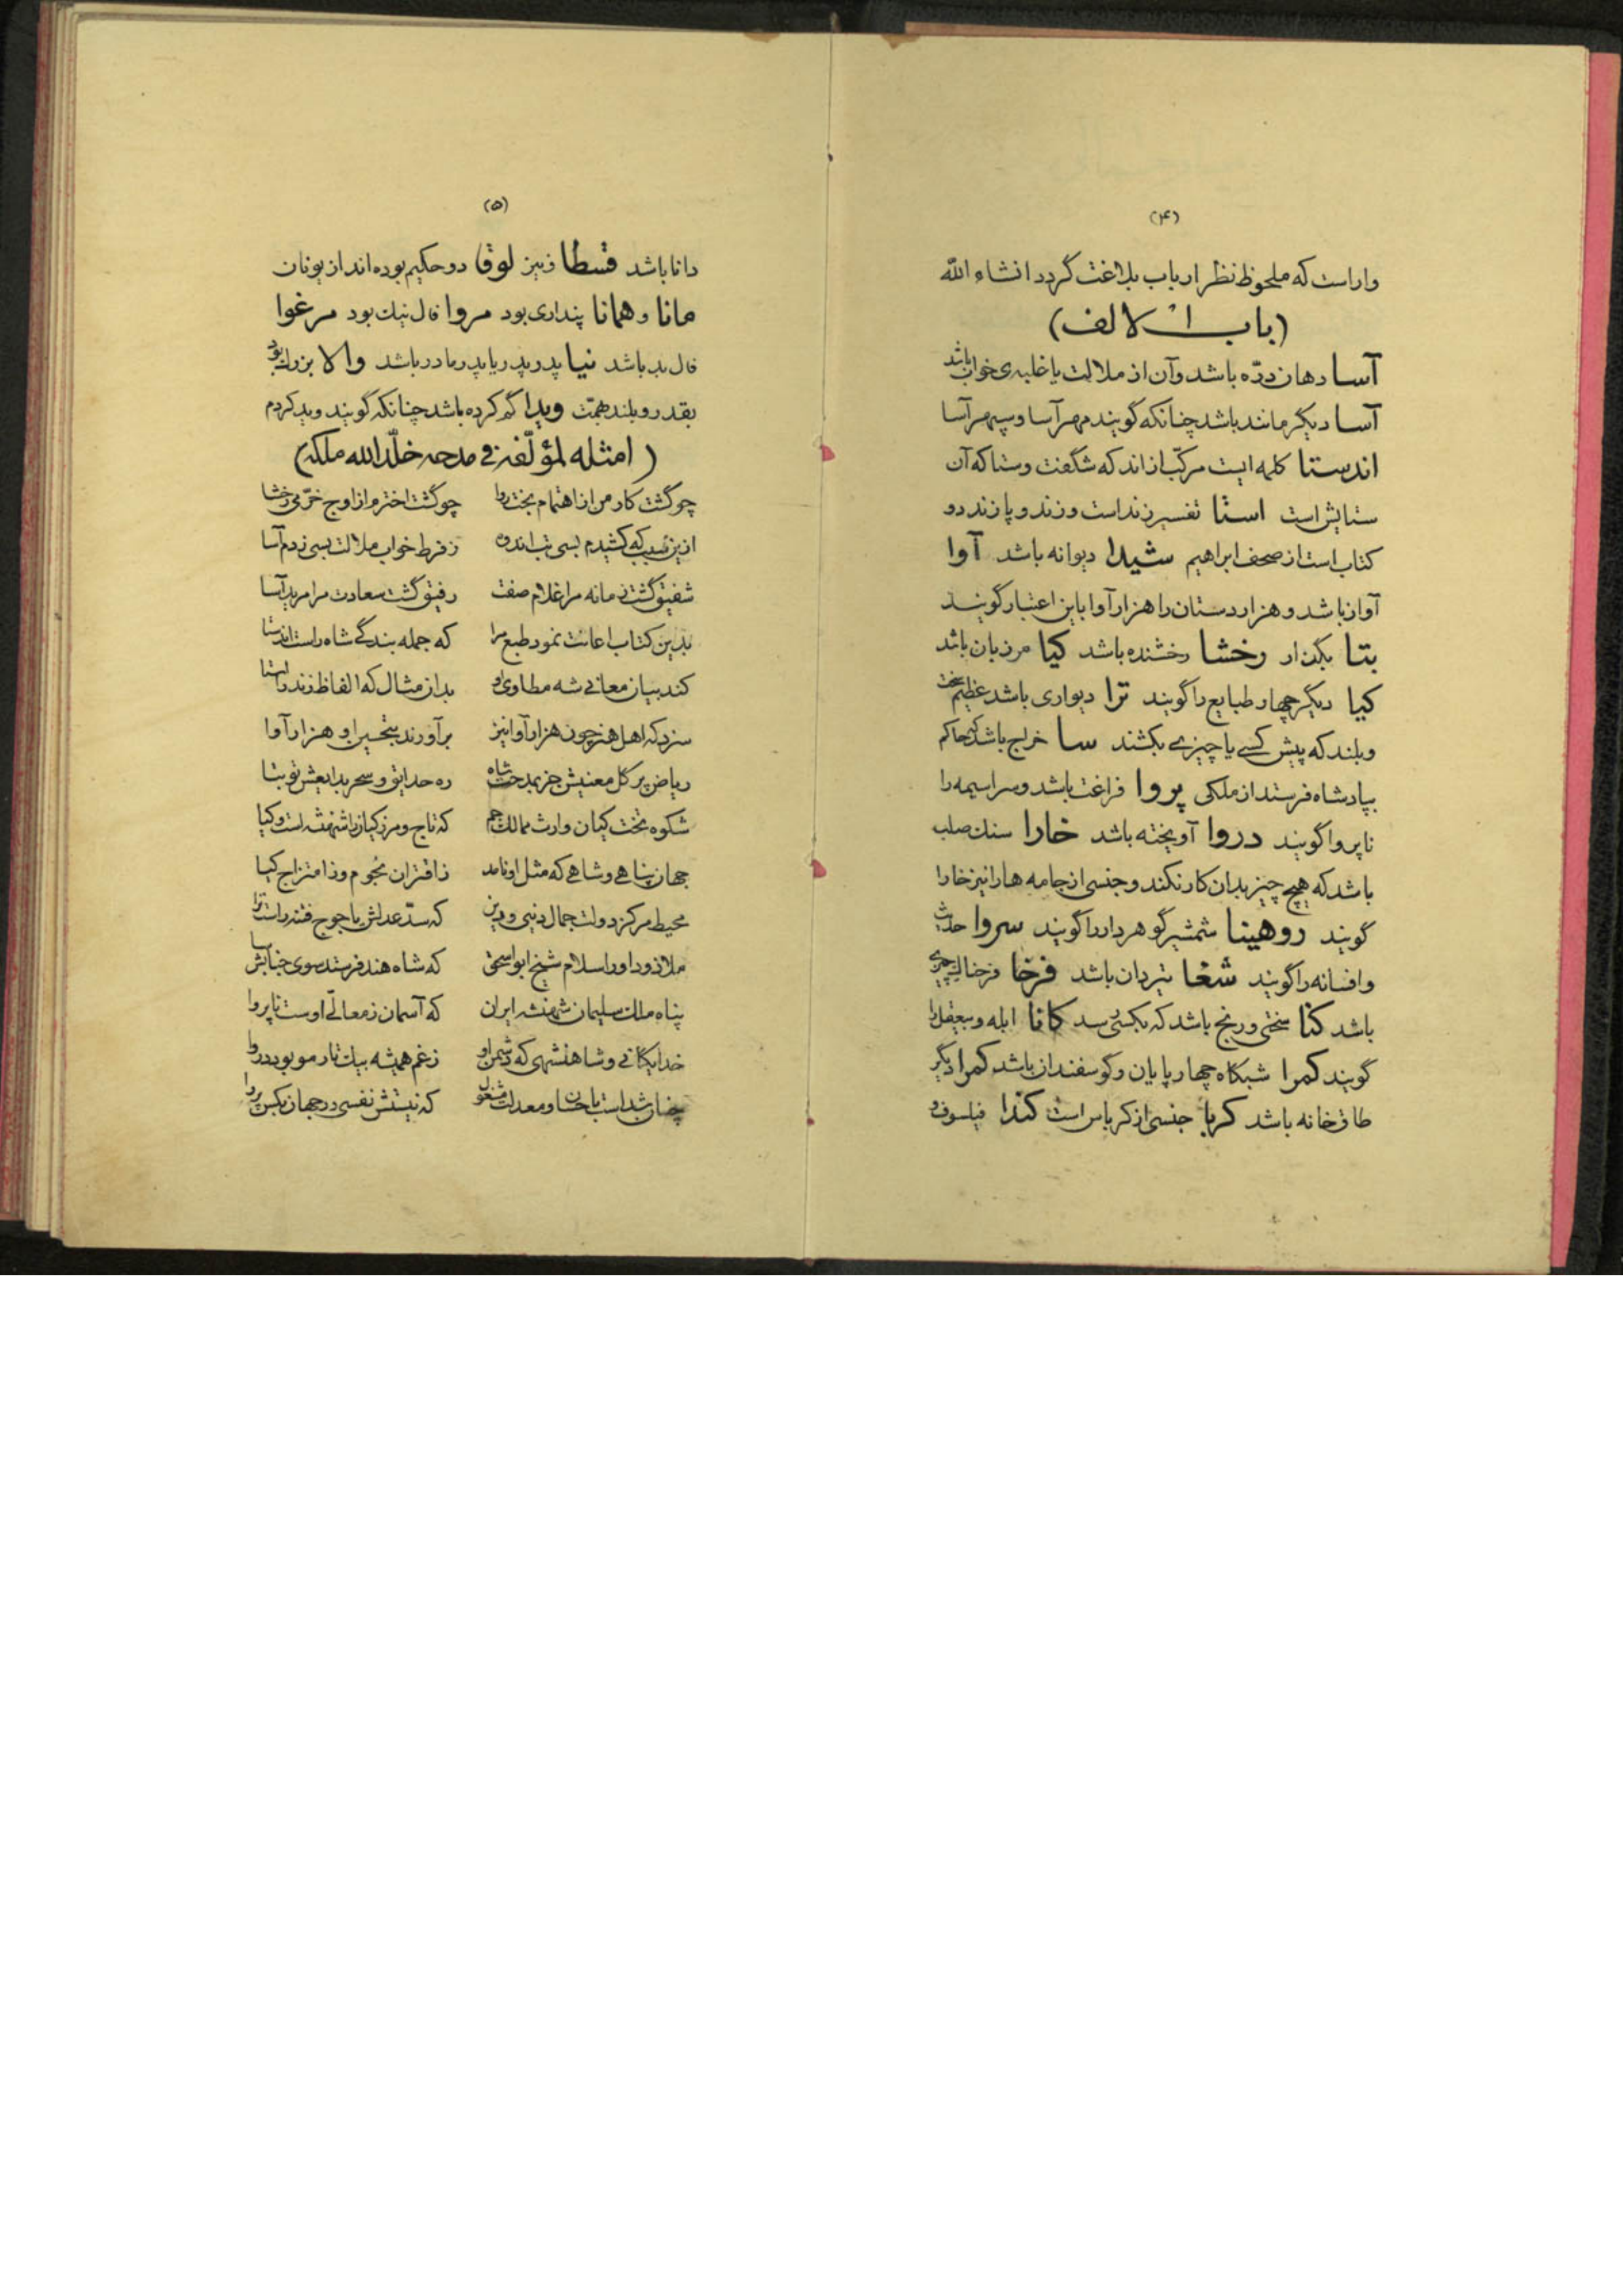 (۴)
وار است که ملحوظ نظر ارباب بلاغت گردد انشاء الله
(باب الالف)
آسا دهان درّه باشد و آن از ملالت یا غلبه‌ی خواب باشد
آسا دیگر مانند باشد چنانکه گویند مهر آسا و سپهر آسا
اندستا کلمه ایست مرکّب از اند که شگفت و ستا که آن
ستایش است استا تفسیر زند است و زند و پازند دو
کتاب است از صحف ابراهیم شیدا دیوانه باشد آوا
آواز باشد و هزاردستان را هزار آوا باین اعتبار گویند
بتا بگذار رخشا رخشنده باشد کیا مرزبان باشد
کیا دیگر چهار طبایع را گویند ترا دیواری باشد عظیم سخت
و بلند که پیش کسی یا چیزی بکشند سا خراج باشد که حاکم
بپادشاه فرستد از ملکی پروا فراغت باشد و سراسیمه را
ناپروا گویند دروا آویخته باشد خارا سنك صلب
باشد که هیچ چیز بدان کار نکند و جنسی از جامه ها را نیز خارا
گویند روهینا شمشیر گوهر دار را گویند سروا حدیث
و افسانه را گویند شغا تیردان باشد فرخا
باشد کنا سختی و رنج باشد که بکسی رسد کانا ابله و بیعقل را
گویند کمرا شبکاه چهارپایان و گوسفندان باشد کمرا دیگر
طاق خانه باشد کربا جنسی از کرباس است کندا فیلسوف و
(۵)
دانا باشد قسطا و نیز لوقا دو حکیم بوده اند از یونان
مانا و همانا پنداری بود مروا فال نیك بود مرغوا
فال بد باشد نیا پدر پدر یا پدر مادر باشد والا بزرك بود
بقدر و بلند همّت ویدا گم کرده باشد چنانکه گویند وید کردم
(امثله لمؤلّفه فی مدحه خلّد الله ملکه)
چو گشت کار من از اهتمام بخت روا چو گشت اختر م از اوج خرّمی رخشا
ازین سبب که کشیدم بسی تب اندوه ز فرط خواب ملالت بسی زدم آسا
شفیق گشت زمانه مرا غلام صفت رفیق گشت سعادت مرا مرید آسا
بدین کتاب اعانت نمود طبع مرا که جمله بندگی شاه راست اندستا
کند بیان معانی شه مطاوی او بدان مثال که الفاظ زند را استا
سزد که اهل هنر چون هزار آوا نیز برآورند بتحسین او هزار آوا
ریاض پر گل معنیش جز بمدحت شاه ره حدایق و سحر بدایعش تو بتا
شکوه تخت کیان وارث ممالك جم که تاج و مرز کیان را شهنشه است و کیا
جهان پناهی و شاهی که مثل او نامد ز اقتران نجوم و ز امتزاج کیا
محیط مرکز دولت جمال دنیی و دین که سدّ عدلش یاجوج فتنه راست ترا
ملاذ و داور اسلام شیخ ابو اسحق که شاه هند فرستد سوی جنابش سا
پناه ملك سلیمان شهنشه ایران که آسمان ز معالیّ اوست ناپروا
خدایگانی و شاهنشهی که دشمن او ز غم همیشه بیك تار مو بود دروا
چنان شد است باحسان و معدلت مشغول که نیستش نفسی در جهان بکس پروا